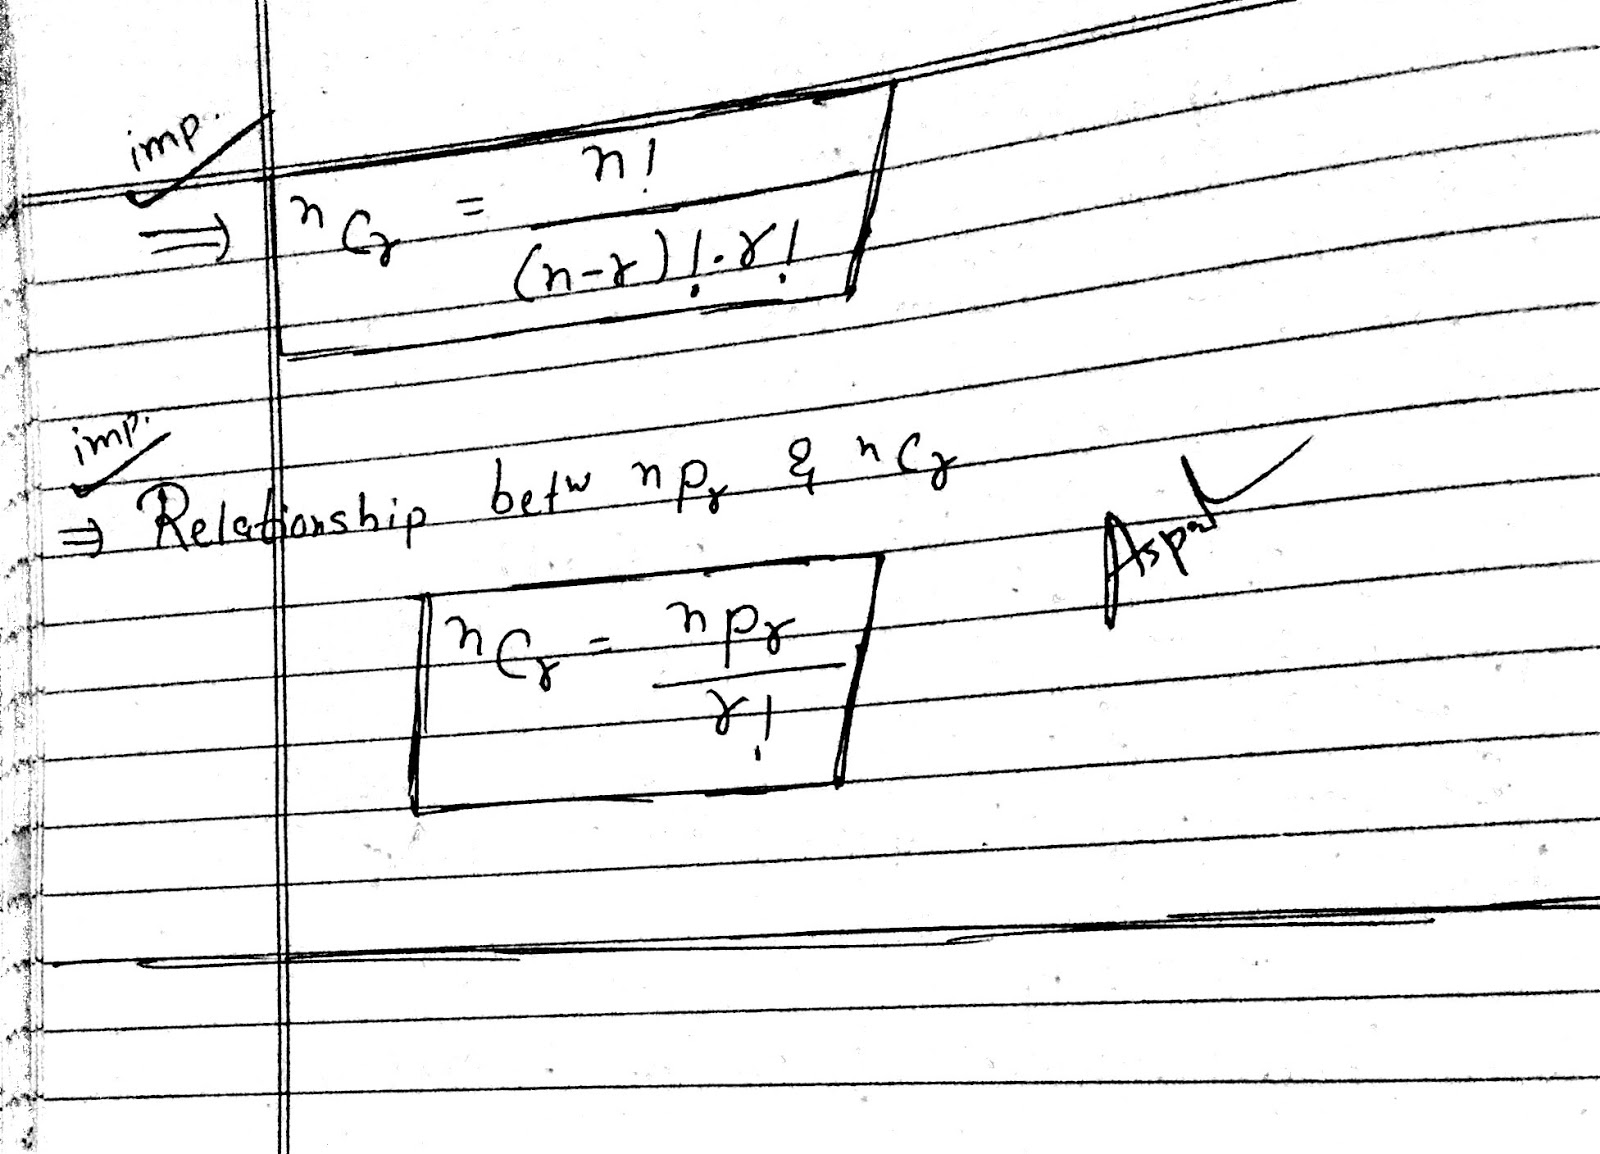 imp.
⇒ nCr = n! / (n-r)! . r!
imp.
⇒ Relationship betw nPr & nCr
nCr = nPr / r!